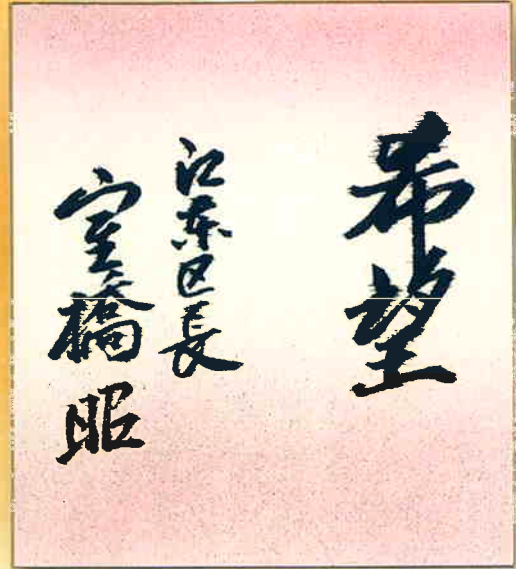 希望
江東区長
室橋昭